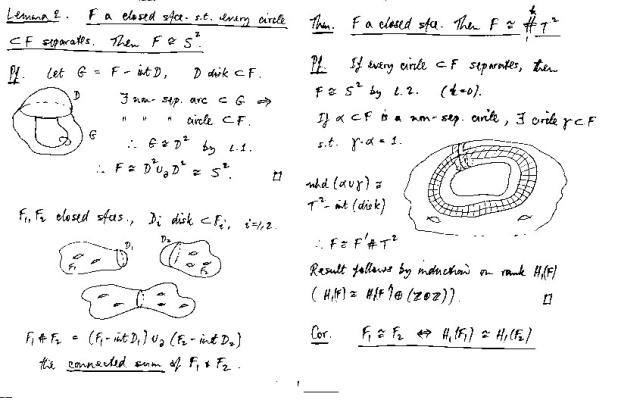 Lemma 2. F a closed sfce. s.t. every circle
⊂ F separates. Then F ≅ S².
Pf. Let G = F - int D, D disk ⊂ F.
D
G
∃ non-sep. arc ⊂ G ⇒
" " " circle ⊂ F.
∴ G ≅ D² by L.1.
∴ F ≅ D² ∪∂ D² ≅ S². □
F₁, F₂ closed sfces., Dᵢ disk ⊂ Fᵢ, i=1,2.
D₁ D₂
F₁ F₂
F₁ # F₂ = (F₁ - int D₁) ∪∂ (F₂ - int D₂)
the connected sum of F₁ & F₂.
Thm. F a closed sfce. Then F ≅ # T²
Pf. If every circle ⊂ F separates, then
F ≅ S² by L.2. (k=0).
If α ⊂ F is a non-sep. circle, ∃ circle γ ⊂ F
s.t. γ·α = 1.
nhd (α∪γ) ≅
T² - int (disk)
∴ F ≅ F' # T²
Result follows by induction on rank H₁(F)
(H₁(F) ≅ H₁(F') ⊕ (Z⊕Z)). □
Cor. F₁ ≅ F₂ ⇔ H₁(F₁) ≅ H₁(F₂)